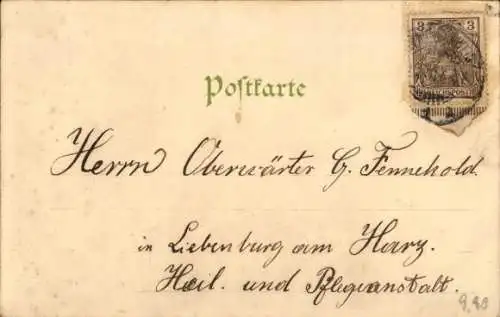 3 3
REICHSPOST
Postkarte
Herrn Oberwärter G. Fennehold.
in Liebenburg am Harz.
Heil. und Pflegeanstalt.
9.90